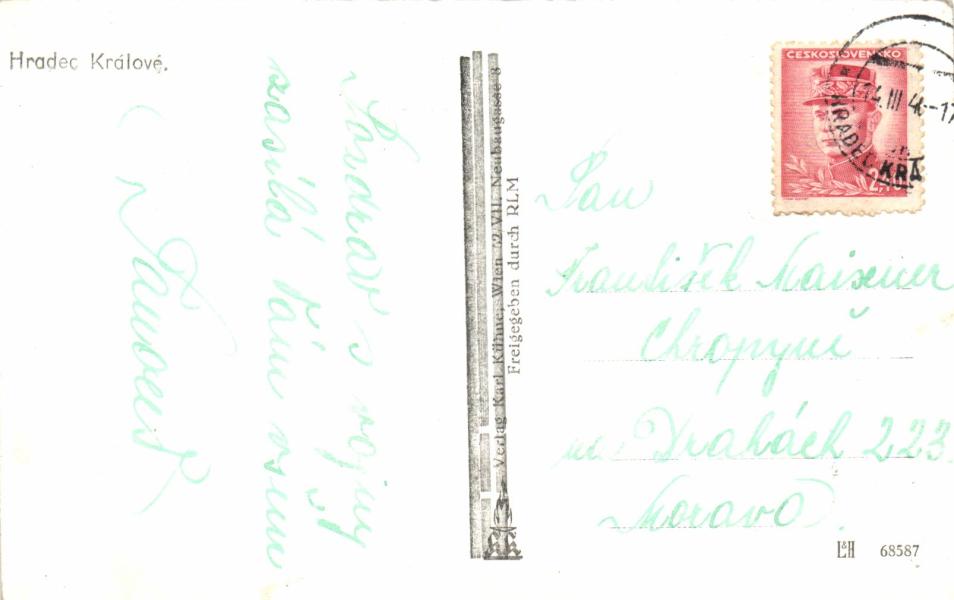 Hradec Králové.
Pozdrav s vojny
zasílá Vám všem
Verlag Karl Kühne, Wien 62/VII, Neubaugasse 8
Freigegeben durch RLM
ČESKOSLOVENSKO
14. III. 46-17
HRADEC KRÁ
Pan
František Maixner
Chropyně
na Drahách 223.
Morava.
L&H 68587